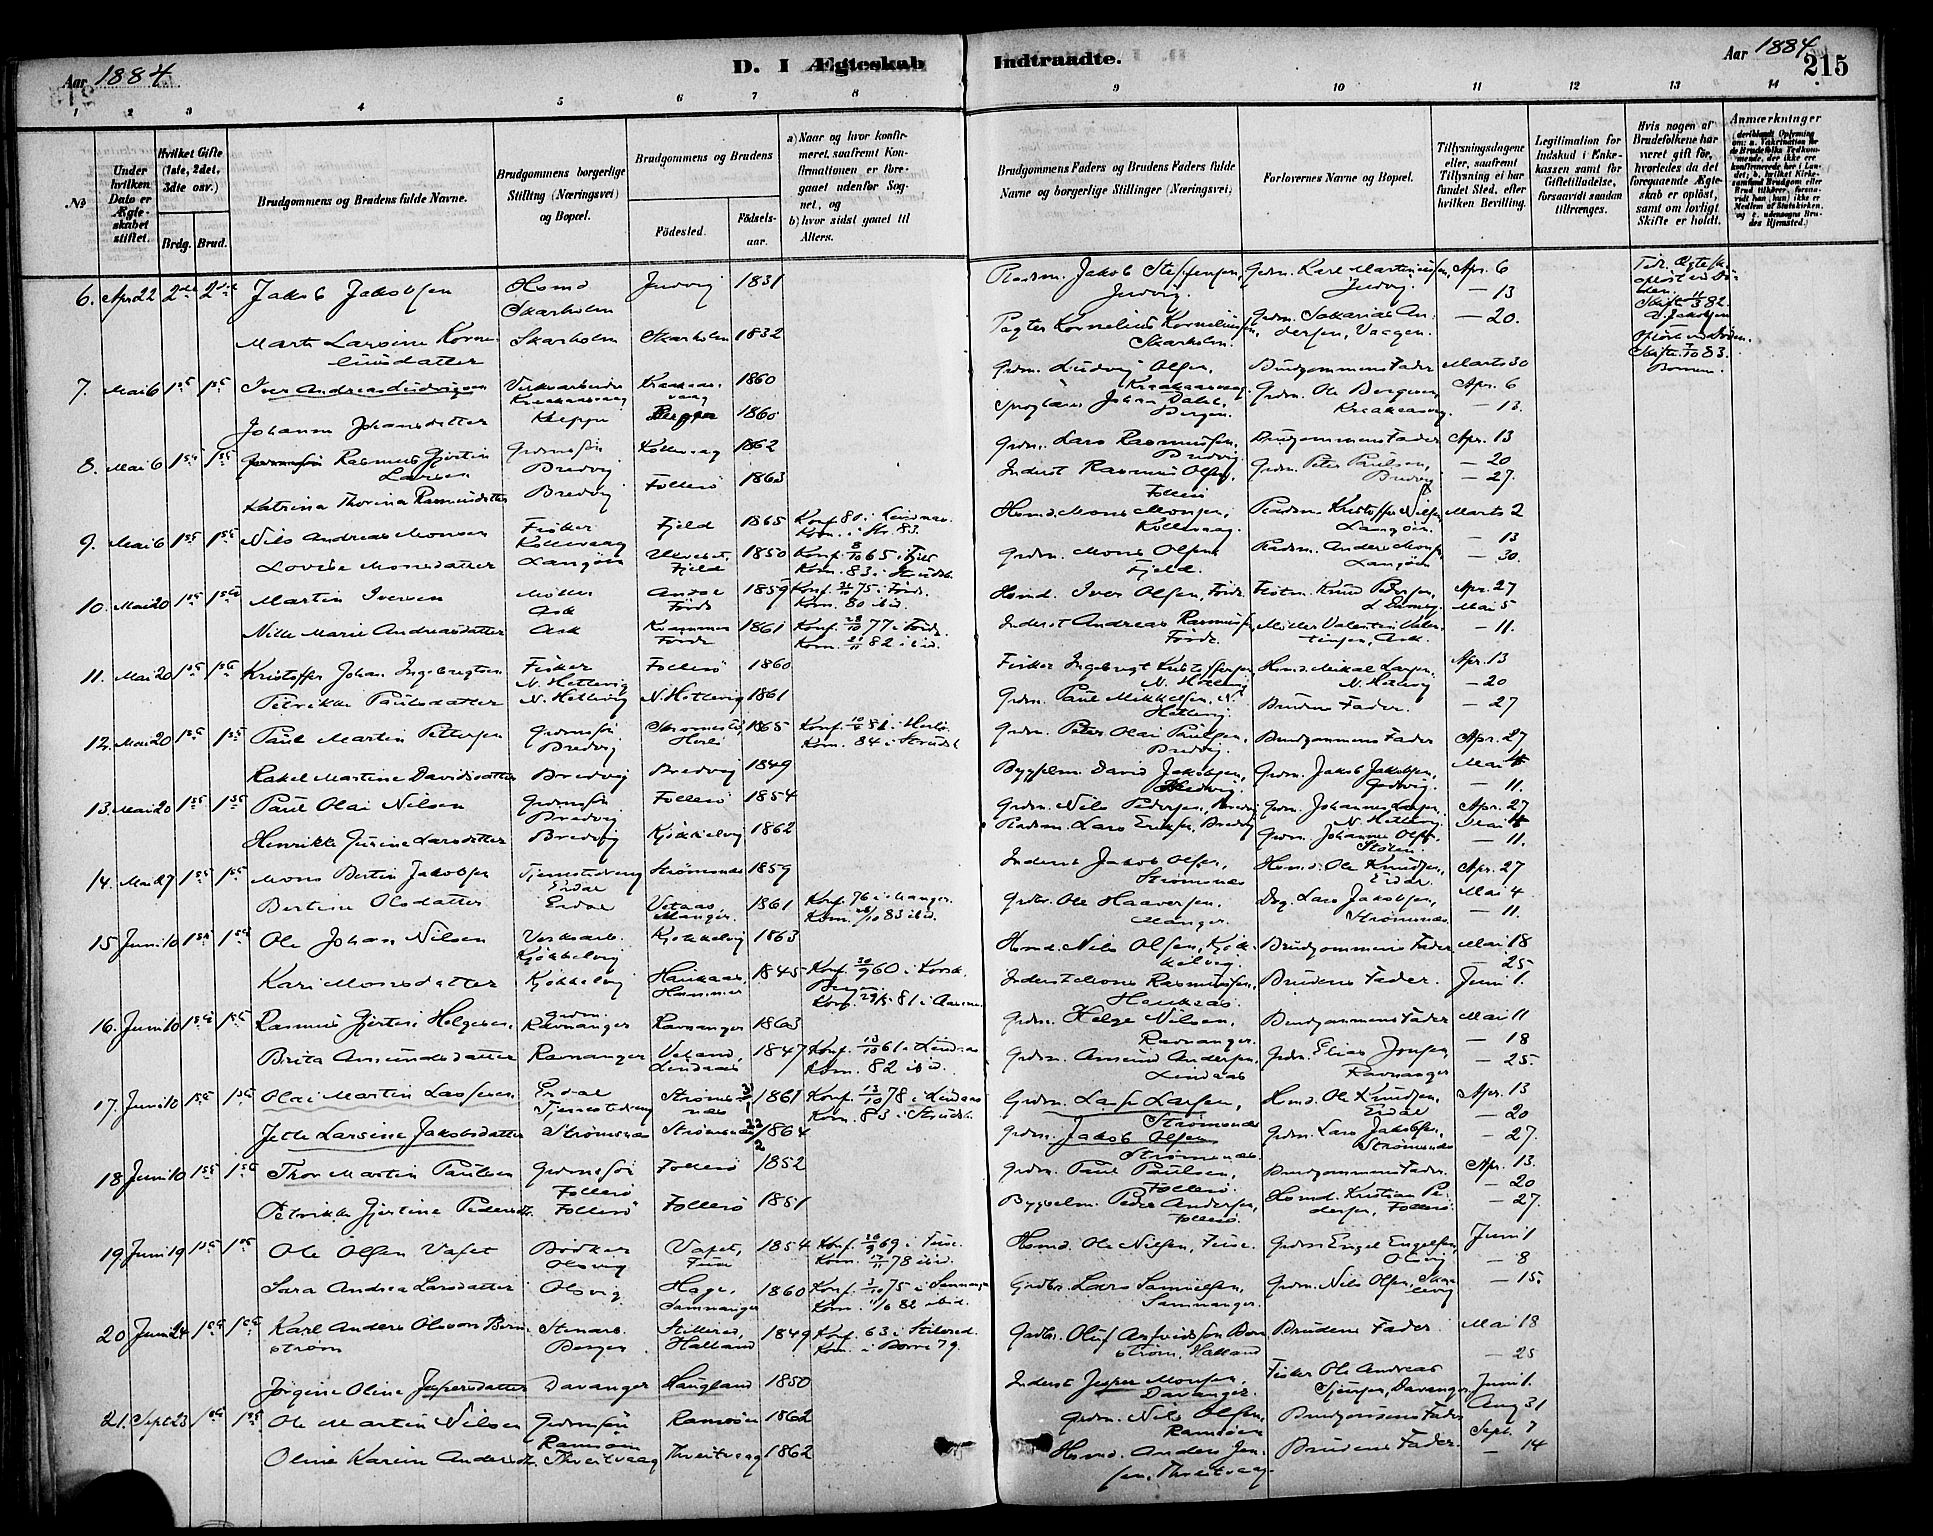 Aar 1884
D. I Ægteskab Indtraadte.
Aar 1884
215
1 2 3 4 5 6 7 8 9 10 11 12 13 14
№
Under hvilken Dato er Ægteskabet stiftet.
Hvilket Gifte (1ste, 2det, 3die osv.)
Brdg. Brud.
Brudgommens og Brudens fulde Navne.
Brudgommens borgerlige Stilling (Næringsvei) og Bopæl.
Brudgommens og Brudens
Födested. Födselsaar.
a) Naar og hvor konfirmeret, saafremt Konfirmationen er foregaaet udenfor Sognet, og
b) hvor sidst gaaet til Alters.
Brudgommens Faders og Brudens Faders fulde Navne og borgerlige Stillinger (Næringsvei)
Forlovernes Navne og Bopæl.
Tillysningsdagene eller, saafremt Tillysning ei har fundet Sted, efter hvilken Bevilling.
Legitimation for Indskud i Enkekassen samt for Giftetilladelse, forsaavidt saadan tiltrænges.
Hvis nogen af Brudefolkene har været gift för, hvorledes da det foregaaende Ægteskab er oplöst, samt om lovligt Skifte er holdt.
Anmærkninger
6. Apr 22 2det 2det Jakob Jakobsen Hsmd Skarholm Indvig 1831 Jakob Steffensen Indvig. Grdm. Karl Martinussen, Indvig. Apr. 6 — 13
Marte Larsine Korneliusdatter Skarholm Skarholm 1832 Pagter Kornelius Korneliussen, Skarholm. Grdm. Sakarias Andersen, Vaagen. — 20.
7. Mai 6 1ste 1ste Iver Andreas Ludvigsen Verksarbeider Kraakaasvaag Kraakaasvaag 1860 Grdm. Ludvig Olsen, Kraakaasvaag Brudgommens Fader Marts 30
Johanna Johansdatter Kleppe Bergen 1860 Johan Dahl, Bergen. Grdm. Ole Bergesen Kraakaasvg. Apr. 6 — 13.
8. Mai 6 1ste 1ste Rasmus Gjertin Larsen Grdmssön Bredvig Kollevaag 1862 Grdm. Lars Rasmussen, Bredvig. Brudgommens Fader Apr. 13
Katrina Thorina Rasmusdatter Bredvig Follesö 1863 Inderst Rasmus Olsen, Follesö Grdm. Peter Paulsen, Bredvig — 20 — 27.
9. Mai 6 1ste 1ste Nils Andreas Monsen Fisker Kollevaag Fjeld 1865 Konf. 80 i Lindaas. Kom. i Str. 83. Hsmd. Mons Monsen, Kollevaag. Kristoffer Nilsen, Langöen. Marts 2
Lovise Monsdatter Langöen Fjeld 1850 Konf. 8/10 65 i Fjeld Kom. 83 i Strudsh. Grdm. Mons Olsen Fjeld. Anders Monsen Langöen — 13 — 30.
10. Mai 20 1ste 1ste Martin Iversen Möller Ask Förde 1859 Konf. 75 i Förde. Kom. 80 ibid. Hsmd. Iver Olsen, Förde. Knud Pedersen, Apr. 27 Mai 5
Nille Marie Andreasdatter Ask Förde 1861 Konf. 28/10 77 i Förde. Kom. 21/11 82 ibid. Inderst Andreas Rasmussen, Förde. Möller Valentin Valentinsen, Ask. — 11.
11. Mai 20 1ste 1ste Kristoffer Johan Ingebrigtsen Fisker N. Hetlevig Follesö 1860 Fisker Ingebrigt Kristoffersen N. Hetlevig Hsmd. Mikal Larsen, N. Hetlevig. Apr. 13 — 20
Petrikke Paulsdatter N. Hetlevig N. Hetlevig 1861 Grdm. Paul Mikkelsen, N. Hetlevig. Brudens Fader. — 27
12. Mai 20 1ste 1ste Paul Martin Pettersen Grdmssön Bredvig Herlö 1865 Konf. 81 i Herlö. Kom. 84 i Strudsh. Grdm. Peter Olai Paulsen, Bredvig. Brudgommens Fader Apr. 27
Rakel Martine Davidsdatter Bredvig Bredvig 1849 David Jakobsen, Grdm. Jakob Jakobsen, Mai 4 — 11.
13. Mai 20 1ste 1ste Paul Olai Nilsen Grdmssön Bredvig Follesö 1854 Grdm. Nils Pedersen, Bredvig Grdm. Johannes Larsen, N. Hetlevig. Apr. 27 Mai 4
Henrikke Jusine Larsdatter Bredvig Kjökkelvig 1862 Lars Eriksen, Bredvig Grdm. Johannes Olsen, Stölen. — 11.
14. Mai 27 1ste 1ste Mons Bertin Jakobsen Tjenestedreng Erdal Strömsnes 1859 Inderst Jakob Olsen, Strömsnes Hsmd. Ole Knudsen, Erdal. Apr. 27
Bertine Olsdatter Erdal Vetaas, Manger. 1861 Konf. 76 i Manger. Kom. 83 ibid. Grdbr. Ole Haaversen, Manger. Lars Jakobsen, Strömsnes. Mai 4 — 11.
15 Juni 10 1ste 1ste Ole Johan Nilsen Verksarb. Kjökkelvig Kjökkelvig 1863 Hsmd. Nils Olsen, Kjökkelvig. Brudgommens Fader Mai 18 — 25
Kari Monsdatter Kjökkelvig Haukaas, Hammer 1845 Konf. 30/9 60 i Korsk. Bergen. Kom. 81 i Aasene. Inderst Mons Rasmussen, Haukaas. Brudens Fader. Juni 1.
16. Juni 10 1ste 1ste Rasmus Gjertin Helgesen, Grdm. Ravnanger Ravnanger 1863 Grdm. Helge Nilsen, Ravnanger. Brudgommens Fader Mai 11 — 18
Brita Amundsdatter Ravnanger Veland, Lindaas 1847 Konf. 13/10 61 i Lindaas Kom. 82 ibid. Grdm. Amund Andersen, Lindaas Grdm. Elias Jonsen Ravnanger — 25.
17. Juni 10 1ste 1ste Olai Martin Larsen Erdal Tjenestedreng Strömsnes 3/1 1861 Konf. 13/10 78 i Lindaas Kom. 83 i Strudsh. Grdm. Lars Larsen, Strömsnes Hsmd. Ole Knudsen, Erdal Apr. 13 — 20
Jette Larsine Jakobsdatter Strömsnes Strömsnes 22/2 1864 Grdm. Jakob Olsen Strömsnes. Grdm. Lars Jakobsen, Strömsnes — 27.
18 Juni 10 1ste 1ste Thor Martin Paulsen Grdmssön Follesö Follesö 1852 Grdm. Paul Paulsen, Follesö. Brudgommens Fader. Apr. 13. — 20
Petrikke Gjertine Pedersdtr. Follesö Follesö 1851 Byggselm. Peder Andersen, Follesö. Hsmd. Kristian Pedersen, Follesö. — 27.
19 Juni 19 1ste 1ste Ole Olsen Vaset Bödker Olsvig Vaset, Fuse 1854 Konf. 69 i Fuse. Kom. 78 ibid. Hsmd. Ole Nilsen, Fuse. Grdm Engel Engelsen, Olsvig Juni 1 — 8
Sara Andrea Larsdatter Olsvig Hage, Sammanger 1860 Konf. 3/10 75 i Sammanger Kom. 82 ibid. Grdbr. Lars Samuelsen, Sammanger. Grdm. Nils Olsen, — 15.
20 Juni 24 1ste 1ste Karl Anders Olsson Bernström Stenarb. Bergen Halland 1849 Konf. 63 i Kom. i Borre 79. Gadbr. Oluf Arfvidsson Bernström, Halland Brudens Fader. Mai 18 — 25
Jörgine Oline Jespersdatter Davanger Haugland 1850 Inderst Jesper Monsen, Davanger. Fisker Ole Andreas Davanger. Juni 1.
21. Sept 23 1ste 1ste Ole Martin Nilsen Grdmssön Ramsöen Ramsöen 1862 Grdm. Nils Olsen, Ramsöen Brudgommens Fader Aug 31 Sept. 7
Oline Karine Andersdtr. Thveitvaag Thveitvaag 1862 Hsmd. Anders Jensen, Thveitvaag. Brudens Fader. — 14